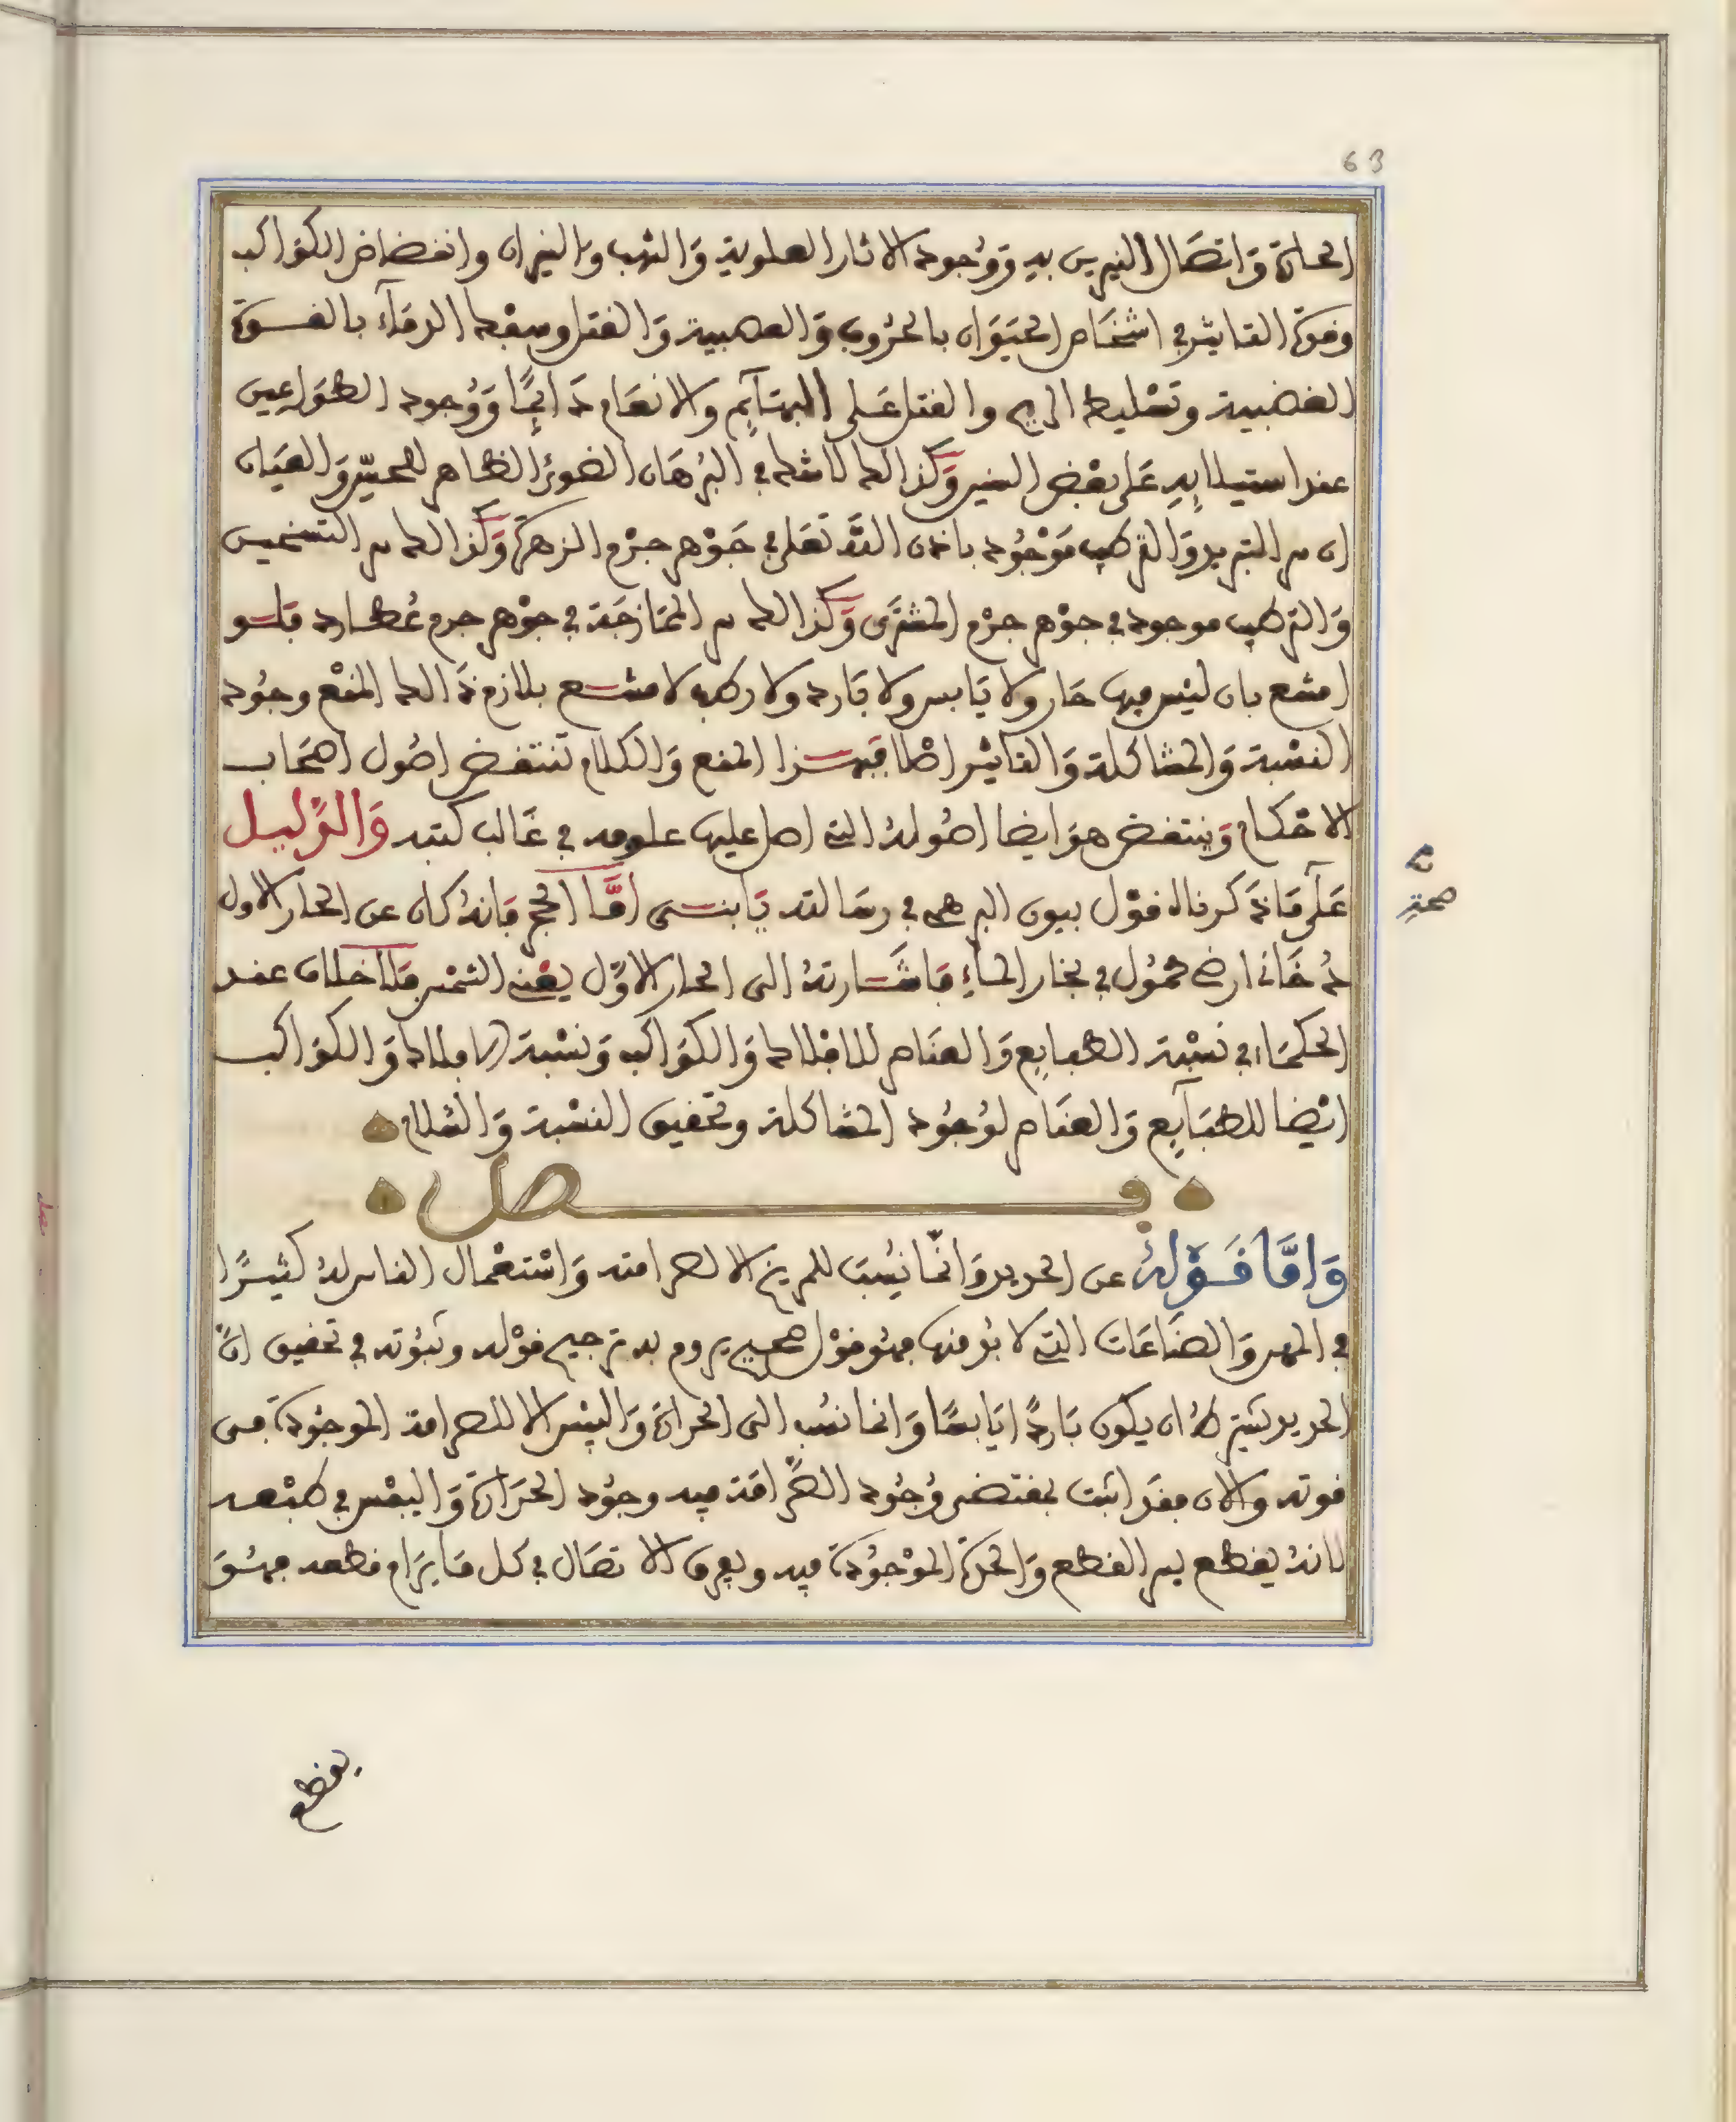 63
الحارة وَاتصَال النيرين به وَوُجود الاثار العلوية وَالشهب والنيران وانقضاض الكواكب
وقوة التاثير في اشخَاص الحيَوَان بالحُروب وَالعصبية وَالقتل وسفْك الدمَآء بالقسوة
الغضبية وتسْليط الريح والقتل عَلى البهَآيم والانعَام دَايمًا وَوُجود الطوَاعين
عند استيلايه عَلى بعْض السنين وَكذالك لا شك في البُرهَان الضوئ الظاهر للحسّ وَالعيَان
ان سر التبريد وَالترطيب مَوْجُود باذن اللَّه تعَلى في جَوْهر جرْم الزهرة وَكذالك سر التسخين
وَالترطيب موجود في جوْهر جرْم المشترَى وَكذالك سر الممَازجَة في جوْهر جرم عُطارد فلو
امتنع بان ليْس فيها حَار ولا يَابس ولا بَارد ولا رطب لامتنع بلازم ذَالك المنْع وجُود
النسْبة وَالمشاكلة وَالتاثير اصْلا فبهذا المنع وَالكلام تنتقض اصُول اصحَاب
الاحْكام وَينتقض هوَ ايضا اصُولهُ التي اصل عليها علومه في غَالب كتبه وَالدَّليل
عَلى مَا ذَكرناه قوْل بيون البرهمي في رسَالته يَابنى امَّا الحجر فانهُ كان عن الحار الاول
دُخَانا ارضي محمُول في بخار المآءِ فاشَارتهُ الى الحار الاوّل يعْني الشمْس فلا خلاف عند
الحكمَاء في نسْبة الطبايع وَالعنَاصر للافلاك وَالكوَاكب وَنسْبة الافلاك وَالكوَاكب
ايْضا للطبَآيع وَالعنَاصر لوُجُود المشاكلة وتحقيق النسْبة وَالسَّلام
فصل
وَامَّا قَوْلهُ عن الحديد وَانّمَا نسُبت للمريخ الا لصرامته وَاسْتعْمال الناس لهُ كثيرًا
في المهن وَالصنَاعَات التي لا بُد منها فهُو قوْل صحيح يروم به ترجيح قوْله وثبُوته في تحقيق انَّ
الحديد يشترط انْ يكون بَاردًا يَابسًا وَانما نسُب الى الحرارة وَاليبْس الا للصرامة الموجُودة في
قوته والان فقَد اثبت بمقتضى وُجُود الصَّرامَة فيه وجوُد الحَرَارة وَاليبْس في طبْعه
لانهُ يقطع بسر القطع وَالحدّة الموْجُودة فيه ويفرق الاتصَال في كل مَا يرَام قطعه فهُوَ
صحته
يقطع